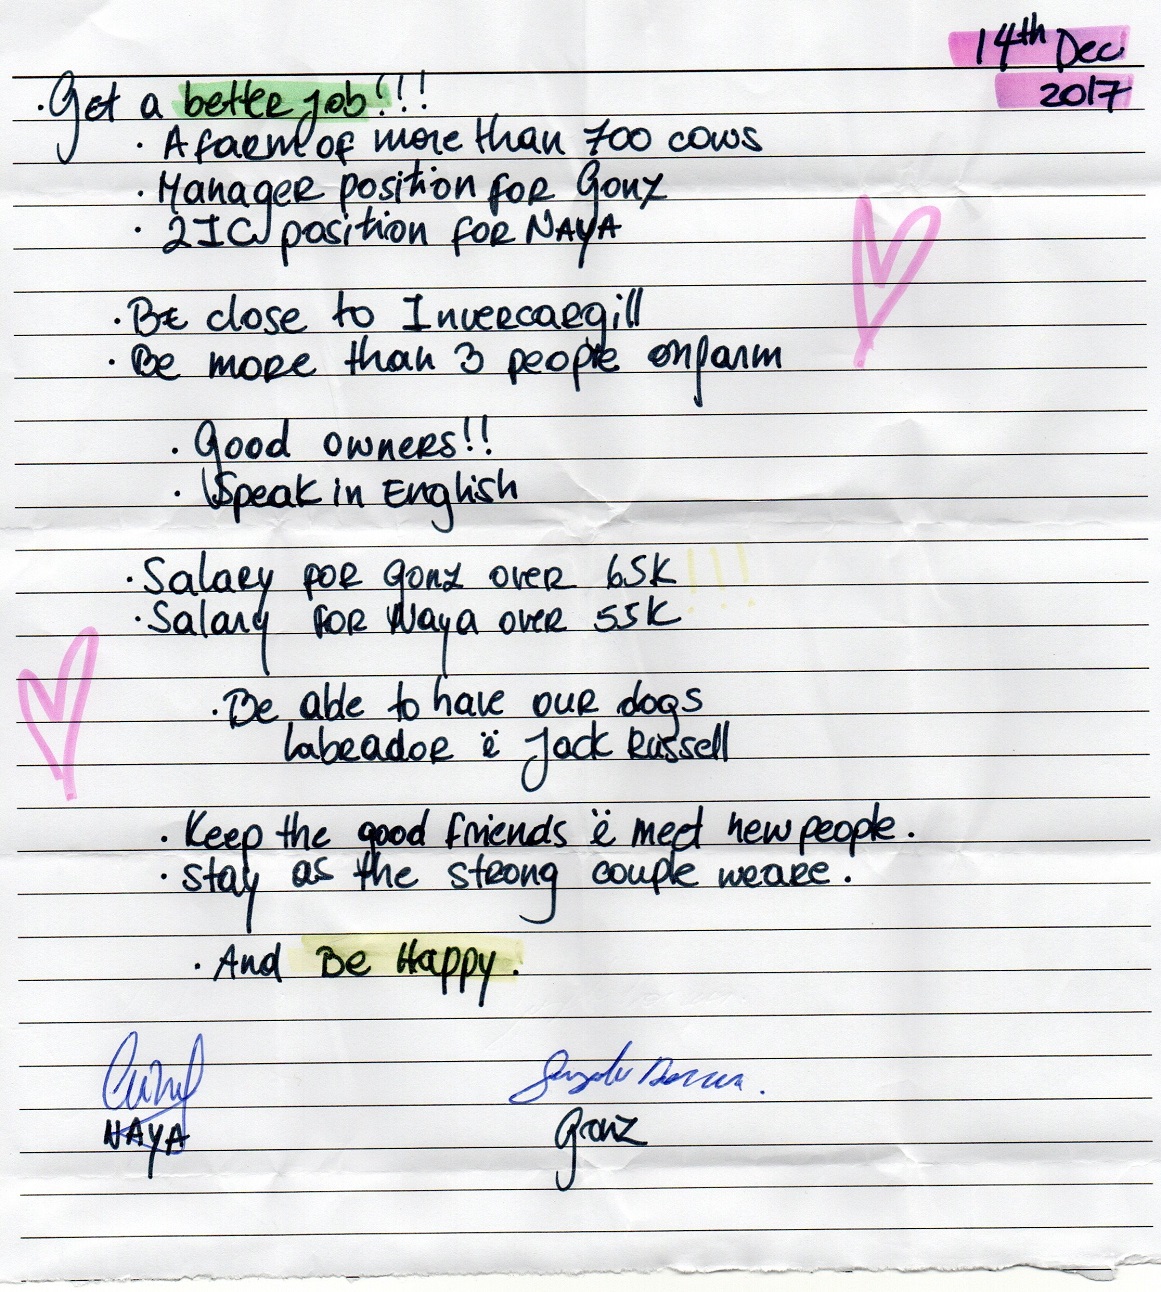 14th Dec
2017
· Get a better job!!!
· A farm of more than 700 cows
· Manager position for Gonz
· 2IC position for NAYA
· Be close to Invercargill
· Be more than 3 people onfarm
· Good owners!!
· Speak in English
· Salary for Gonz over 65K !!!
· Salary for Naya over 55K
· Be able to have our dogs
labrador ë Jack Russell
· Keep the good friends ë meet new people.
· stay as the strong couple we are.
· And Be Happy.
NAYA
Gonz